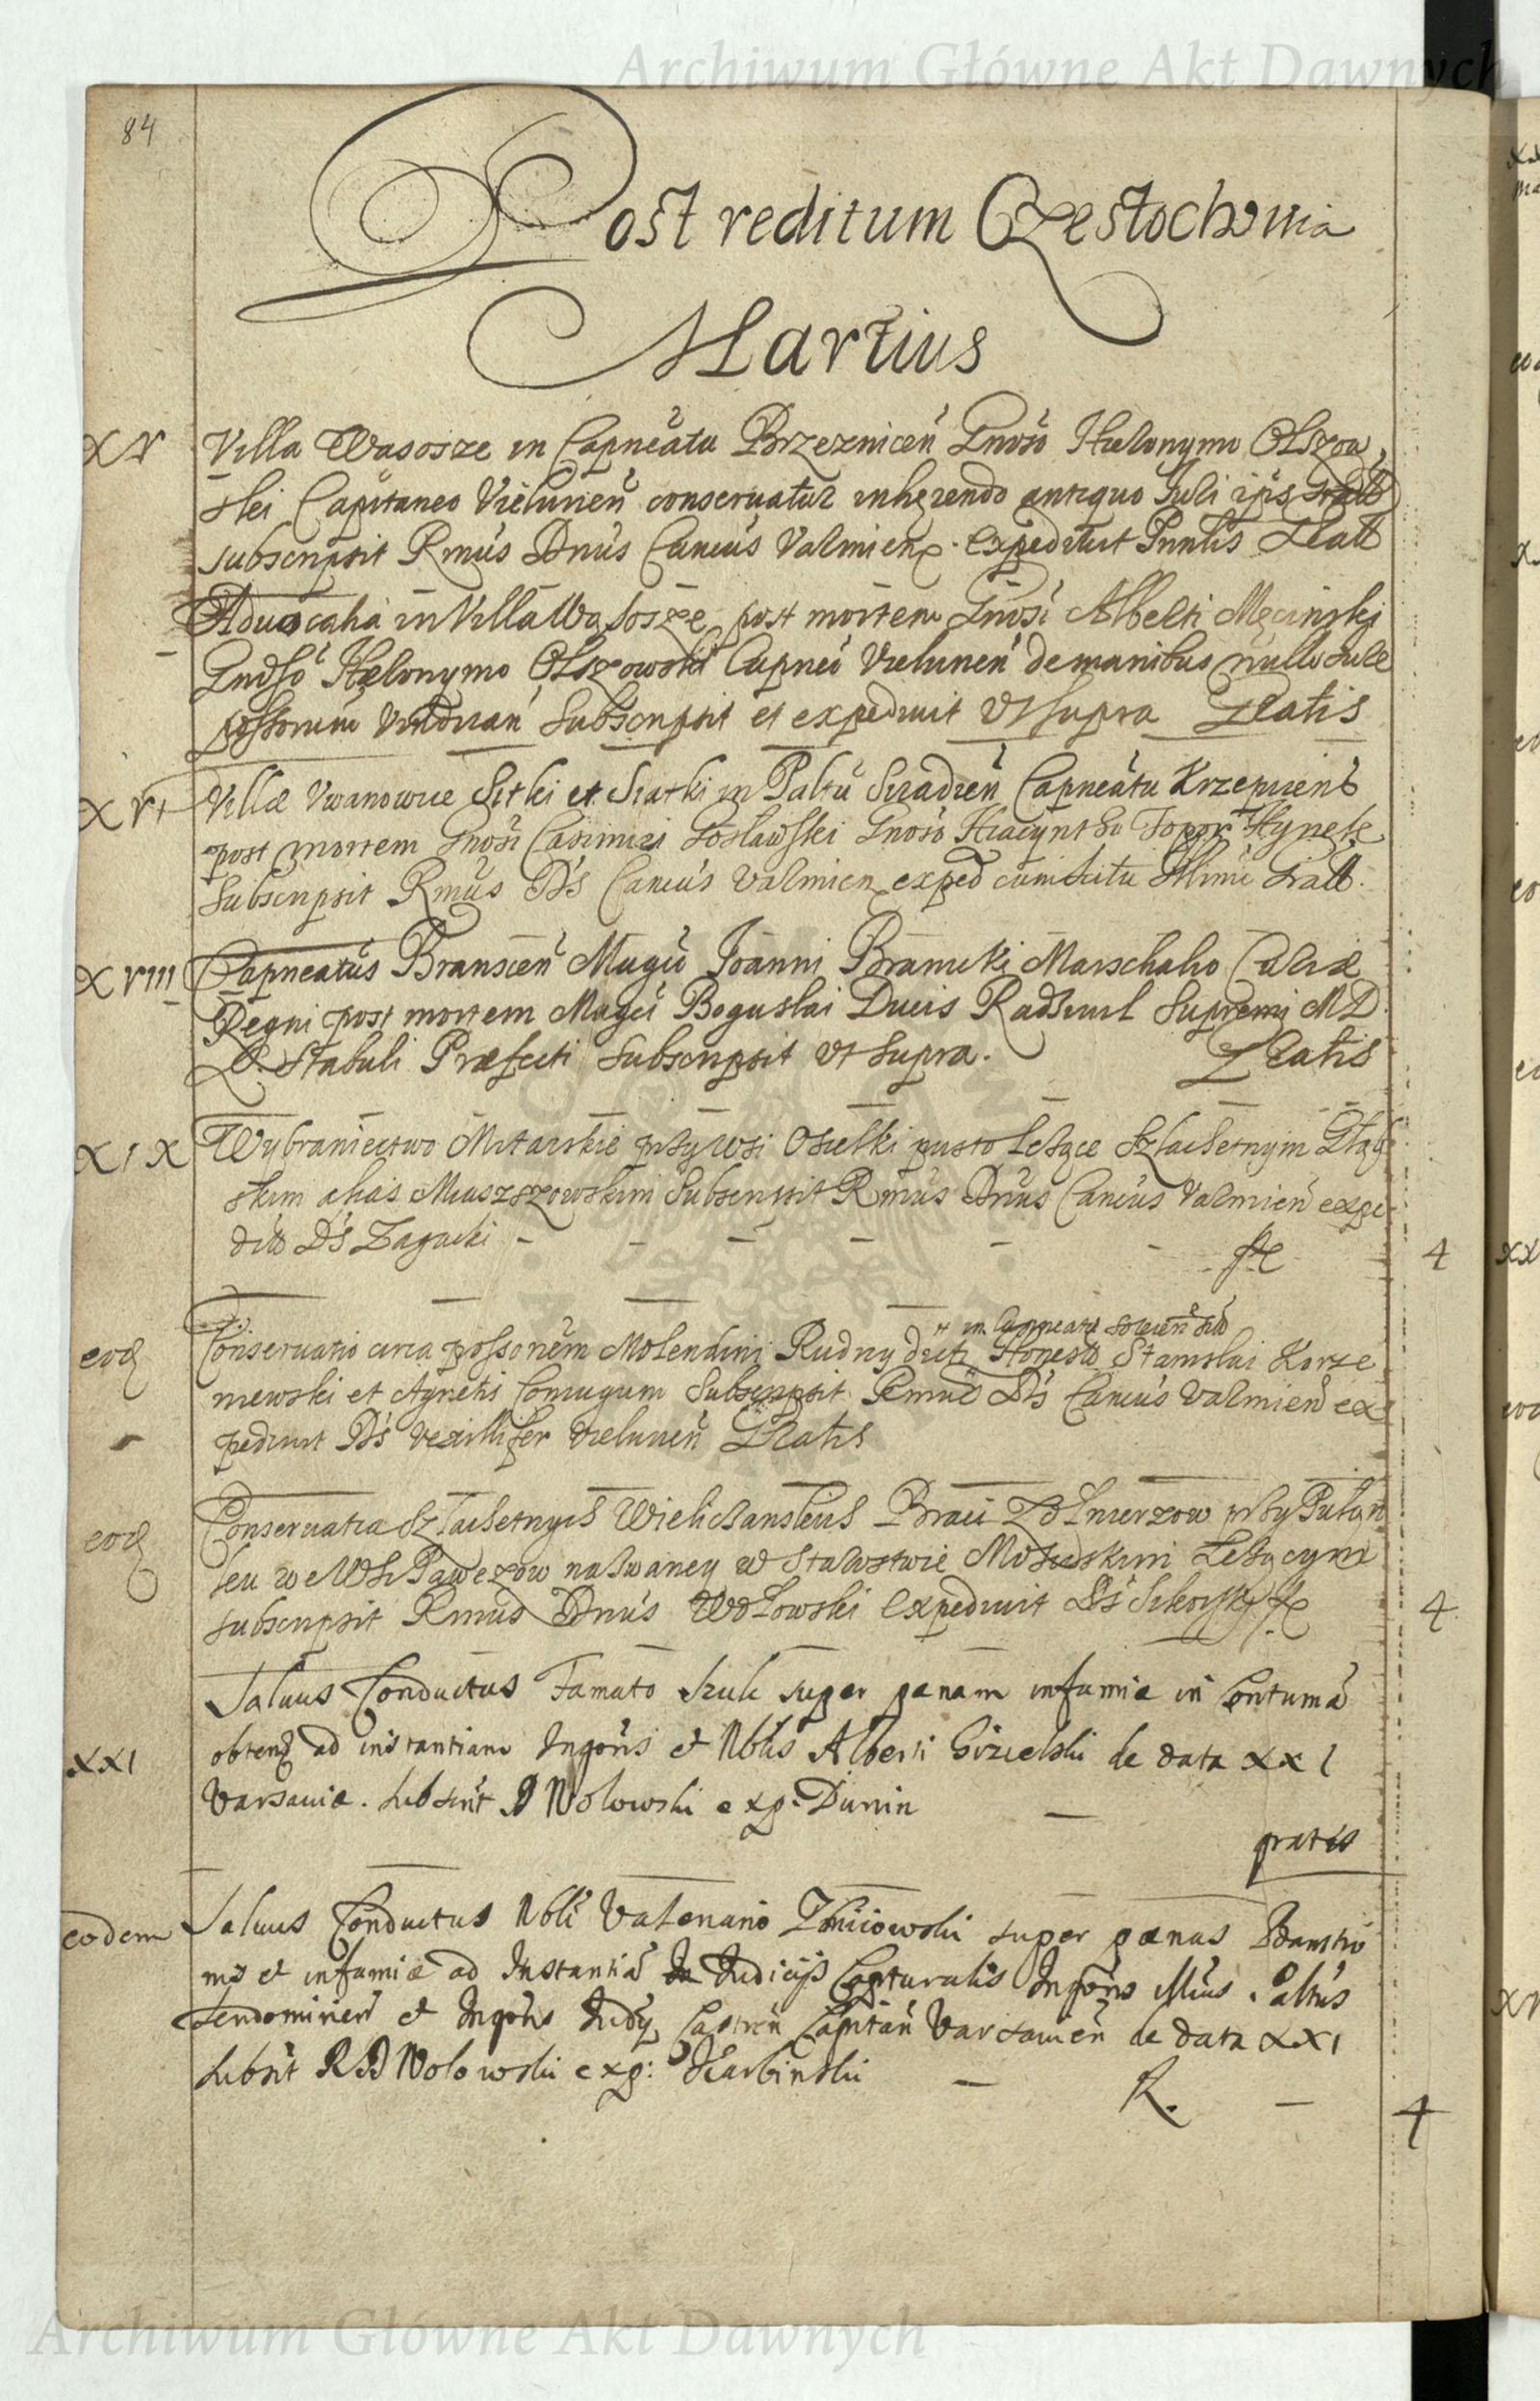 Archiwum Główne Akt Dawnych
84
Post reditum Częstochovia
Martius
XV Villa Wasosze in Capneatu Brzeznicen Gnoso Hieronymo Olszow
ski Capitaneo Vielunen conservatur inhęrendo antiquo Juri ipis Gratt
subscripsit Rmus Dnus Cancus Varmien. expedivit Grat
Advocatia in Villa Wąsosze post mortem Gnosi Alberti Męcinski
Gndso Hieronymo Olszowski Capneo Vielunen de manibus nullo Jure
possorum subscripsit et expedivit Ut supra Gratis
XVI Villæ Iwanowice Sitki et Siatki in Paltu Siradien Capneatu Krzepicens
post mortem Gnosi Casimiri Gosławski Gnoso Hiacyntho Topor Hynek
Subscripsit Rmus Ds Cancus Varmien exped cum scitu Illmi Gratt.
XVIII Capneatus Branscen Magco Joanni Branicki Marschalco Curiæ
Regni post mortem Magci Boguslai Ducis Radziwil Supremi M D
L. Stabuli Præfecti Subscripsit Ut Supra. Gratis
XIX Wybraniectwo Mitarskie przy Wsi Osielki pusto Leżące Szlachetnym Głąb
skim alias Miaszszowskim Subscripsit Rmus Dnus Cancus Varmien expe
dit Ds Zagacki fl 4
in Capneatu
eod Conservatio circa possonem Molendini Rudny dicti Honesto Stanislai Korze
niewski et Agnetis Conjugum Subscripsit Rmus Ds Cancus Varmien ex
pedivit Ds Vexillifer Vielunen Gratis
eod Conservatia Szlachetnych Wielichanskich Braci Zolnierzow przy
we Wsi Pawezow nazwaney w Starostwie Leżącym
subscripsit Rmus Dnus Wolowski Expedivit Ds Sikorski fl 4
Salvus Conductus Famato Szulc super pænam infamiæ in Contuma
XXI obten ad instantiam Ingoris et Nblis Alberti Gizielski de data XXI
Varsaviæ. Subscrit D Wolowski exp. Dunin
gratis
eodem Salvus Conductus Nbli Valeriano super pænas Bannitio
nis et infamiæ ad Instantia Judicijs Capturalis Ingoris Paltus
Sendomirien et Ingoris Judy Castren Capitan Varsavien de data XXI
Subsit R D Wolowski exp: Skarbinski R. 4
Archiwum Główne Akt Dawnych